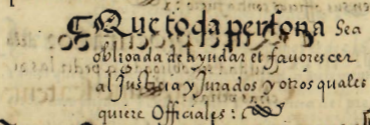 Que toda persona Sea
obligada de ayudar et favorescer
al Justicia y Jurados y otros quales
quiere Officiales: